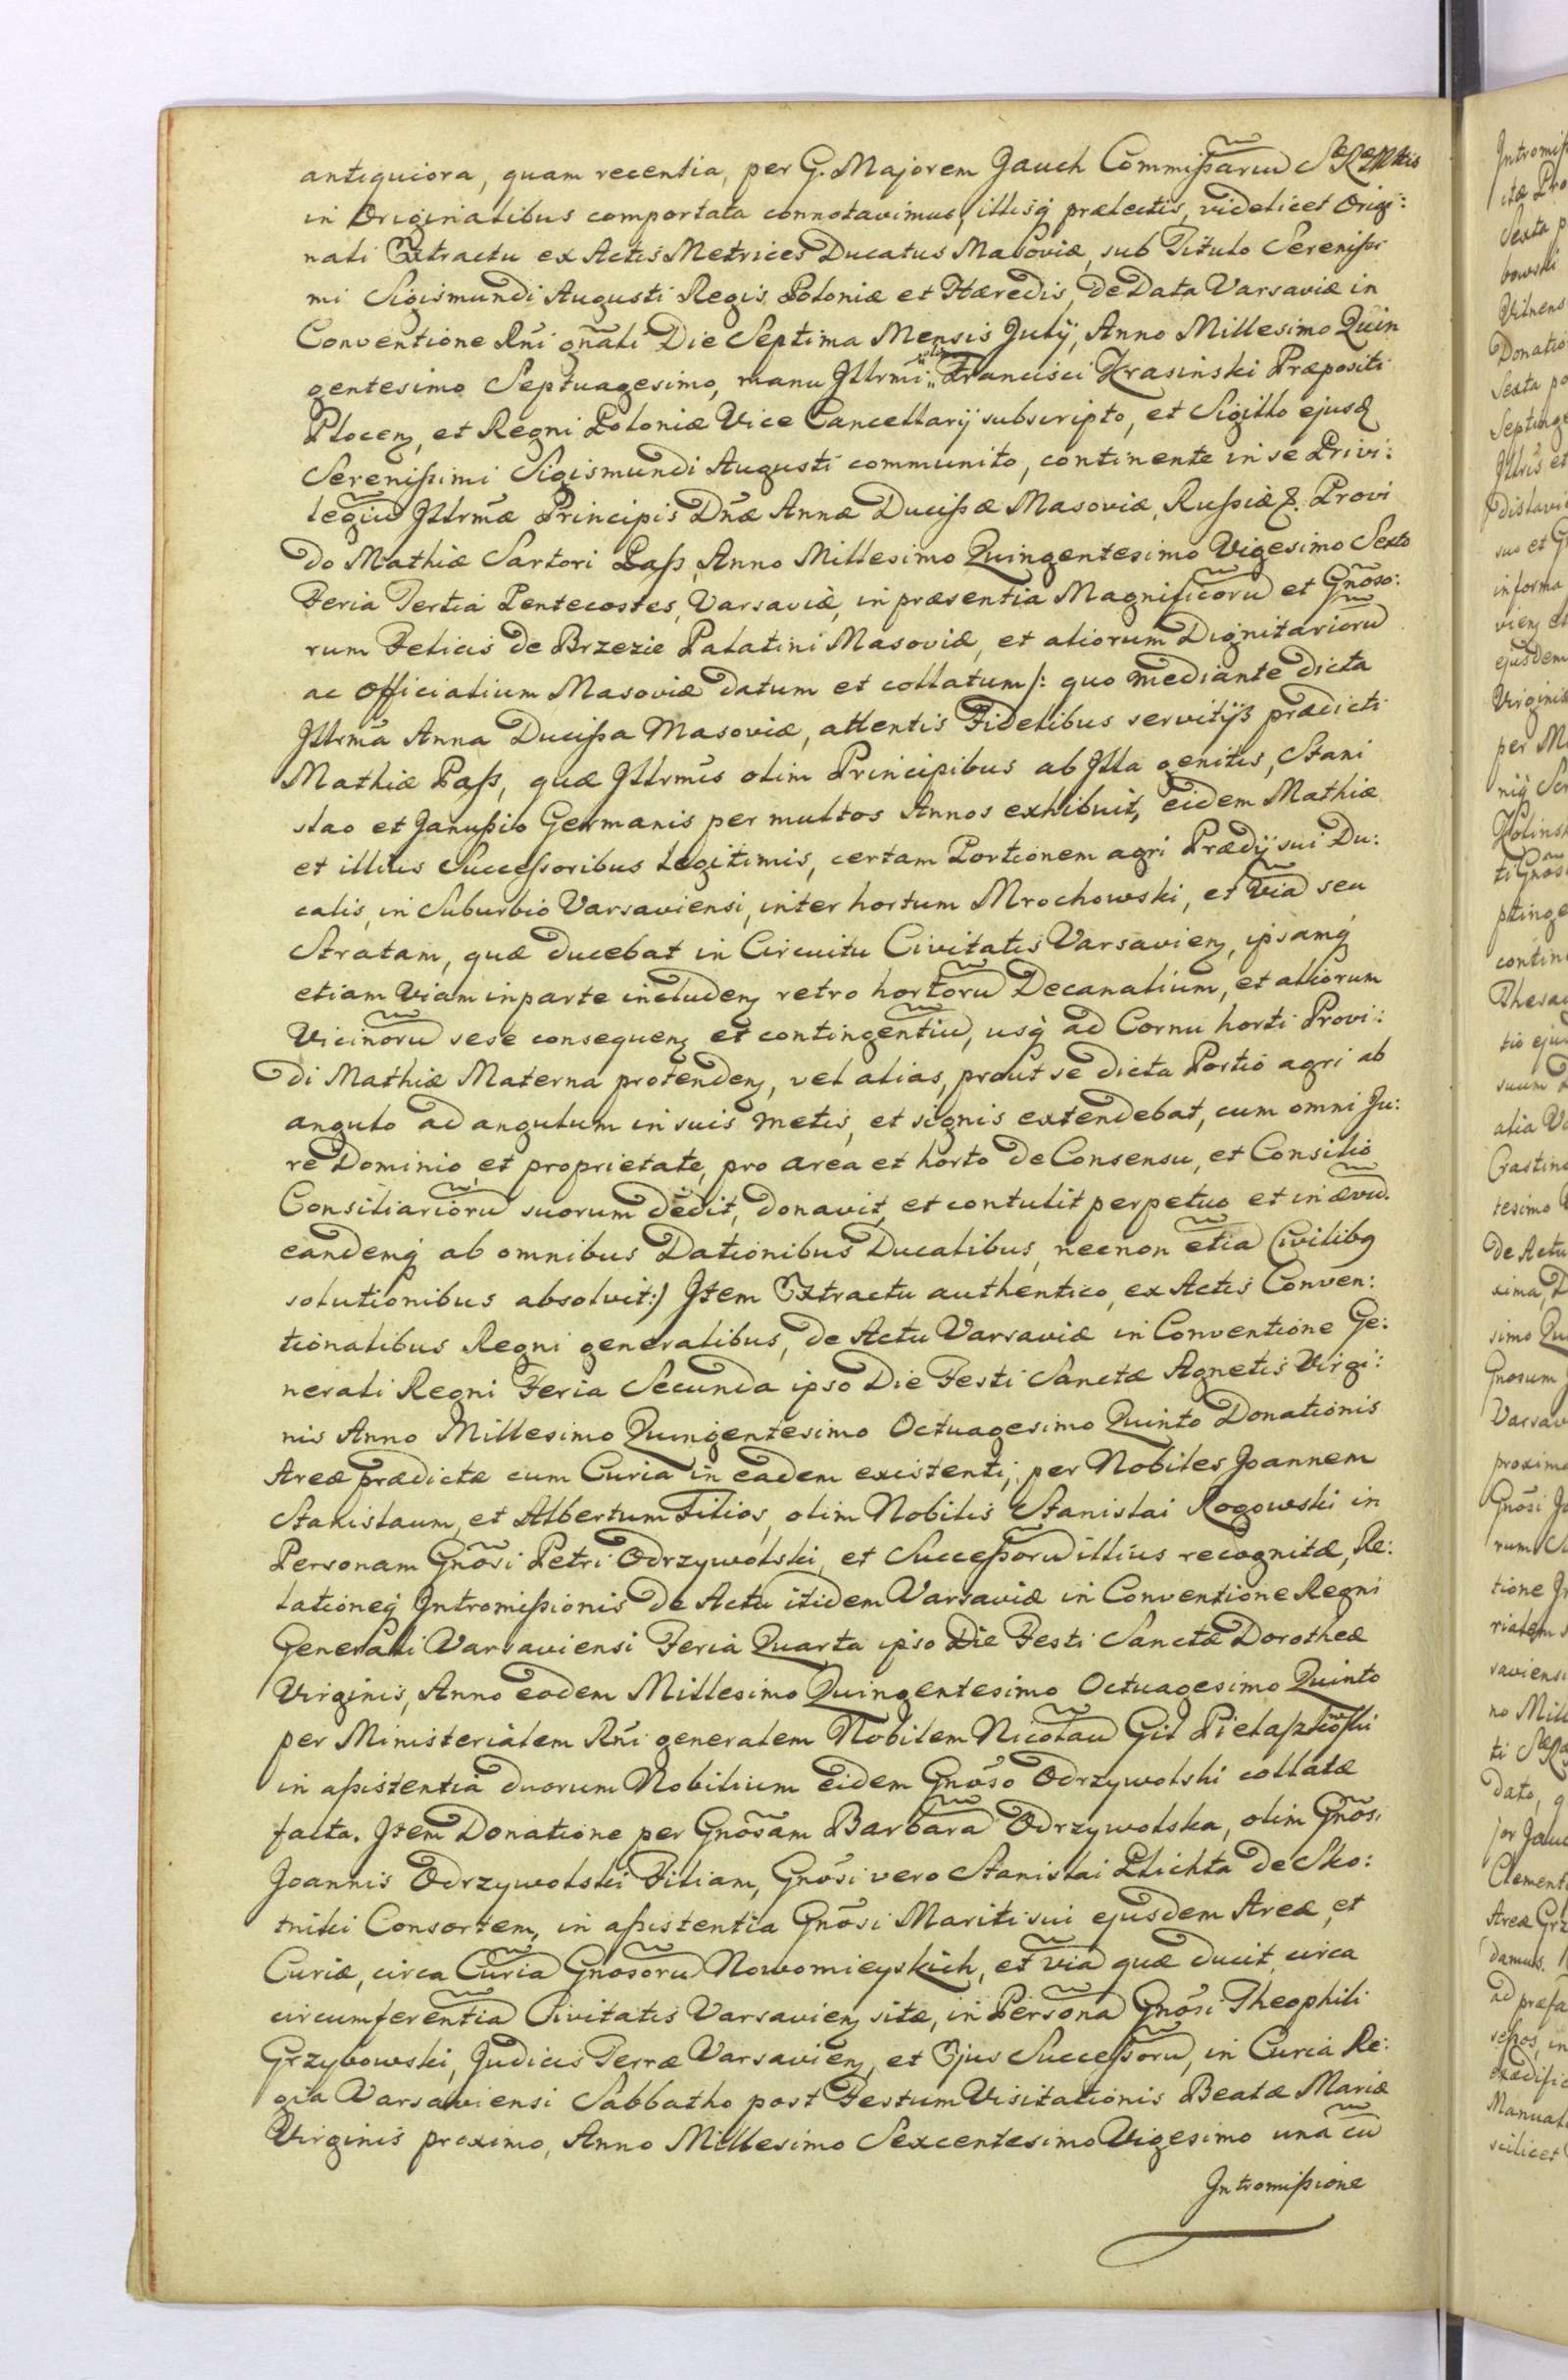 antiquiora, quam recentia, per G. Majorem Jauch Commißariũ SæRæMttis
in Originalibus comportata connotavimus, illisq́ prælectis, videlicet Origi:
nali Extractu ex Actis Metrices Ducatus Masoviæ, sub Titulo Sereniß:
mi Sigismundi Augusti Regis Poloniæ et Hæredis, de Data Varsaviæ in
Conventione Rñi gñali Die Septima Mensis Julÿ, Anno Millesimo Quin
gentesimo Septuagesimo, manu Jllrmi olim Francisci Krasinski Præpositi
Plocenȝ, et Regni Poloniæ Vice Cancellarÿ subscripto, et Sigillo ejusd̃
Serenißimi Sigismundi Augusti communito, continente in se Privi:
legiũ Jllrmæ Principis Dnæ Annæ Ducißæ Masoviæ, Rußiæ &. Provi
do Mathiæ Sartori Paß, Anno Millesimo Quingentesimo Vigesimo Sexto
Feria Tertia Pentecostes, Varsaviæ, in præsentia Magnificorũ et Gñoso:
rum Felicis de Brzezie Palatini Masoviæ, et aliorum Dignitariorũ
ac Officialium Masoviæ datum et collatum /: quo mediante dicta
Jllrmã Anna Ducißa Masoviæ, attentis Fidelibus servitÿs prædicti
Mathiæ Paß, quæ Jllrmĩs olim Principibus ab Jlla genitis, Stani
slao et Janußio Germanis per multos Annos exhibuit, eidem Mathiæ
et illius Succeßoribus Legitimis, certam Portionem agri Prædÿ sui Du:
calis, in Suburbio Varsaviensi, inter hortum Mrochowski, et Viã seu
Stratam, quæ ducebat in Circuitu Civitatis Varsavienȝ, ipsamq́
etiam Viam in parte includenȝ retro hortorũ Decanalium, et aliorum
Vicinorũ sese consequenȝ et contingentiũ, usq́ ad Cornu horti Provi:
di Mathiæ Materna protendenȝ, vel alias, prout se dicta Portio agri ab
angulo ad angulum in suis metis, et signis extendebat, cum omni Ju:
re Dominio, et proprietate, pro area et horto de Consensu, et Consilio
Consiliariorũ suorum dedit, donavit, et contulit perpetuo et in ævũ.
eandemq́ ab omnibus Dationibus Ducalibus, necnon etiã Civilibq
solutionibus absolvit:/ Jtem Extractu authentico, ex Actis Conven:
tionalibus Regni generalibus, de Actu Varsaviæ in Conventione Ge:
nerali Regni Feria Secunda ipso Die Festi Sanctæ Agnetis Virgi:
nis Anno Millesimo Quingentesimo Octuagesimo Quinto Donationis
Areæ prædictæ cum Curia in eadem existenti, per Nobiles Joannem
Stanislaum, et Albertum Filios, olim Nobilis Stanislai Rogowski in
Personam Gñosi Petri Odrzywolski, et Succeßorũ illius recognitæ, Re:
lationeq́ Intromißionis de Actu itidem Varsaviæ in Conventione Regni
Generali Varsaviensi Feria Quarta ipso Die Festi Sanctæ Dorotheæ
Virginis, Anno eodem Millesimo Quingentesimo Octuagesimo Quinto
per Ministerialem Rñi generalem Nobilem Nicolaũ Gil Pietaszkowski
in aßistentia duorum Nobilium eidem Gnõso Odrzywolski collatæ
facta. Jtem Donatione per Gnõsam Barbarã Odrzywolska, olim Gnõsi
Joannis Odrzywolski Filiam, Gnõsi vero Stanislai Plichta de Sko:
tniki Consortem, in aßistentia Gnõsi Mariti sui ejusdem Areæ, et
Curiæ, circa Curiã Gnosorũ Nowomieyskich, et viã quæ ducit circa
circumferentiã Civitatis Varsavienȝ sitæ, in Personã Gnõsi Theophili
Grzybowski, Judicis Terræ Varsavienȝ, et Ejus Succeßorũ, in Curia Re:
gia Varsaviensi Sabbatho post Festum Visitationis Beatæ Mariæ
Virginis proximo, Anno Millesimo Sexcentesimo Vigesimo una cũ
Intromißione